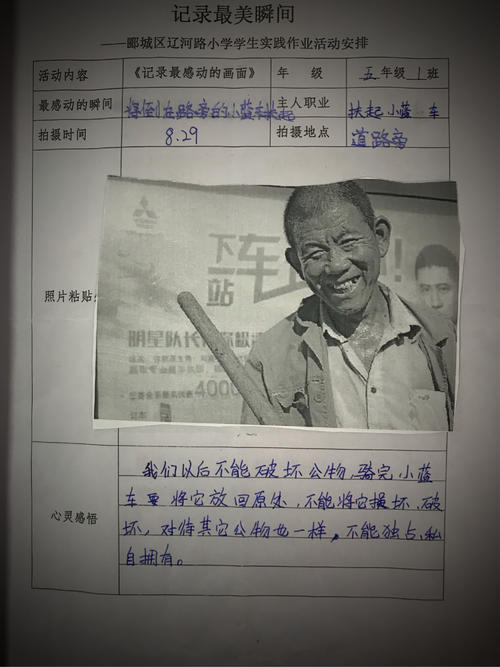 记录最美瞬间
——郾城区辽河路小学学生实践作业活动安排
活动内容 《记录最感动的画面》 年 级 五年级 1 班
最感动的瞬间 将倒在路旁的小蓝车扶起 主人职业 扶起小蓝车
拍摄时间 8.29 拍摄地点 道路旁
下一站
车
明星队长
4000
照片粘贴
我们以后不能破坏公物,骑完小蓝
车要将它放回原处,不能将它损坏、破
坏,对待其它公物也一样,不能独占、私
自拥有。
心灵感悟